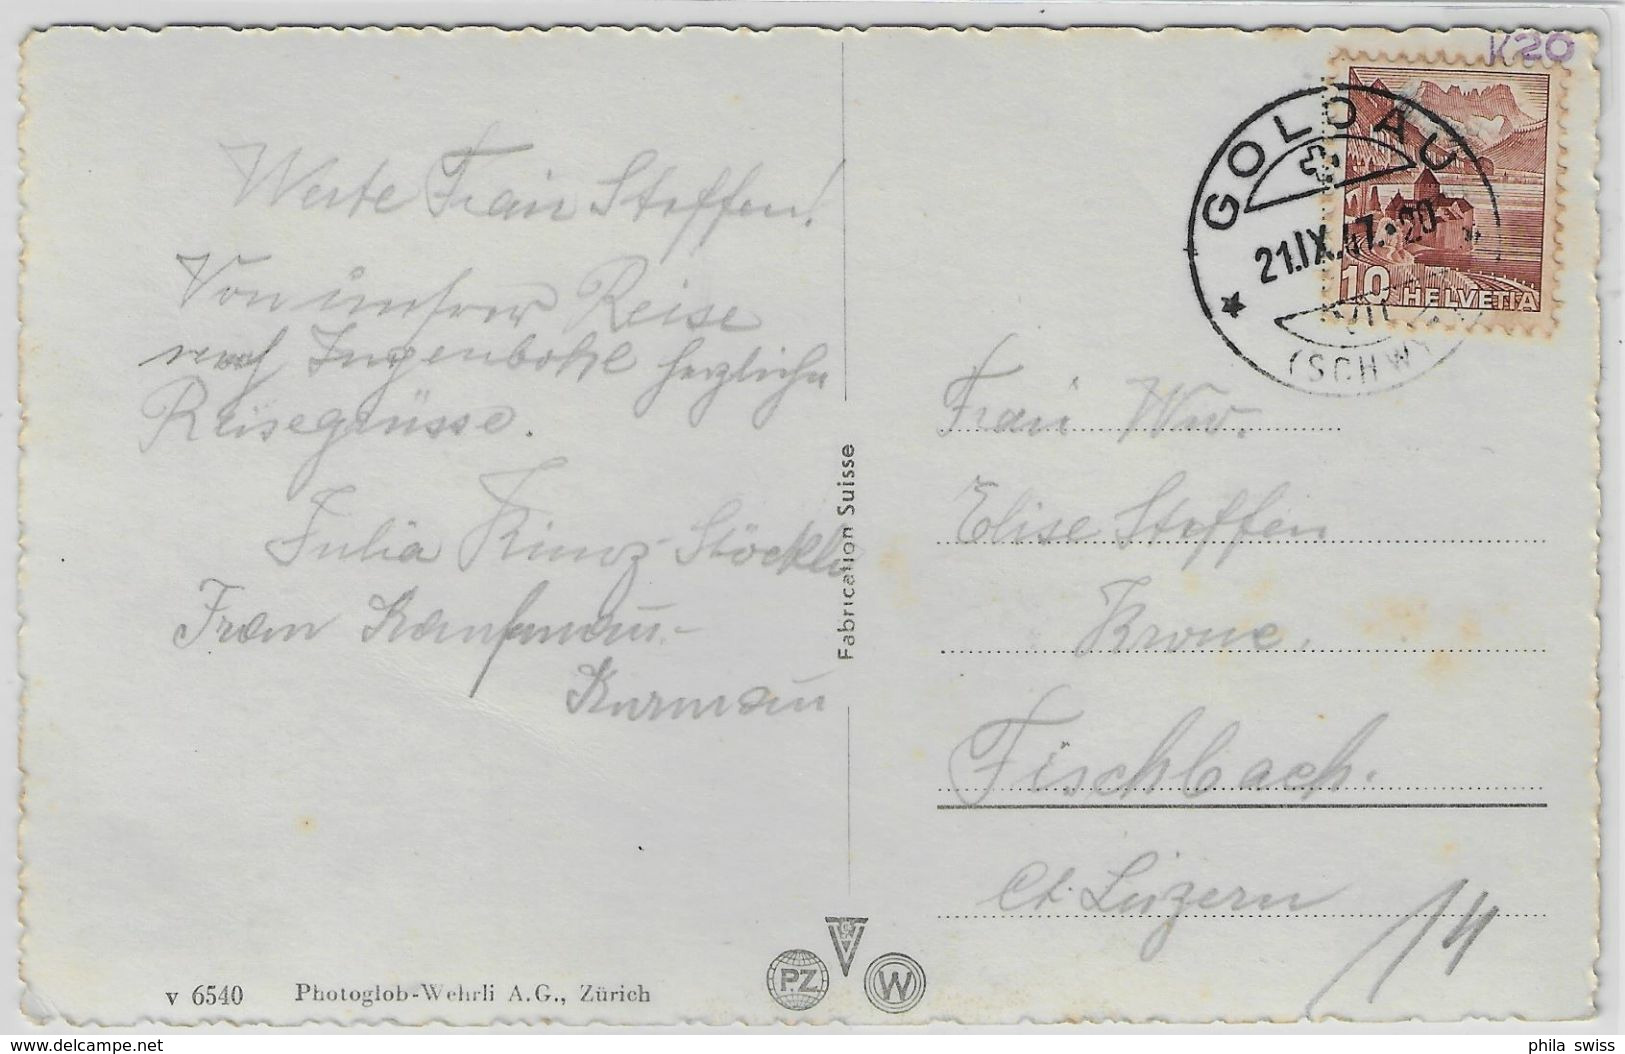 K20
GOLDAU
21.IX.47.-20
(SCHWYZ)
10 HELVETIA
Werte Frau Steffen!
Von unserer Reise
nach Ingenbohl herzliche
Reisegrüsse.
Julia
Frau Kaufmann-
Fabrication Suisse
Frau Ww.
Elise Steffen
Krone.
Fischbach.
Ct. Luzern
14
v 6540 Photoglob-Wehrli A.G., Zürich
PZ
W
delcampe.net
phila swiss